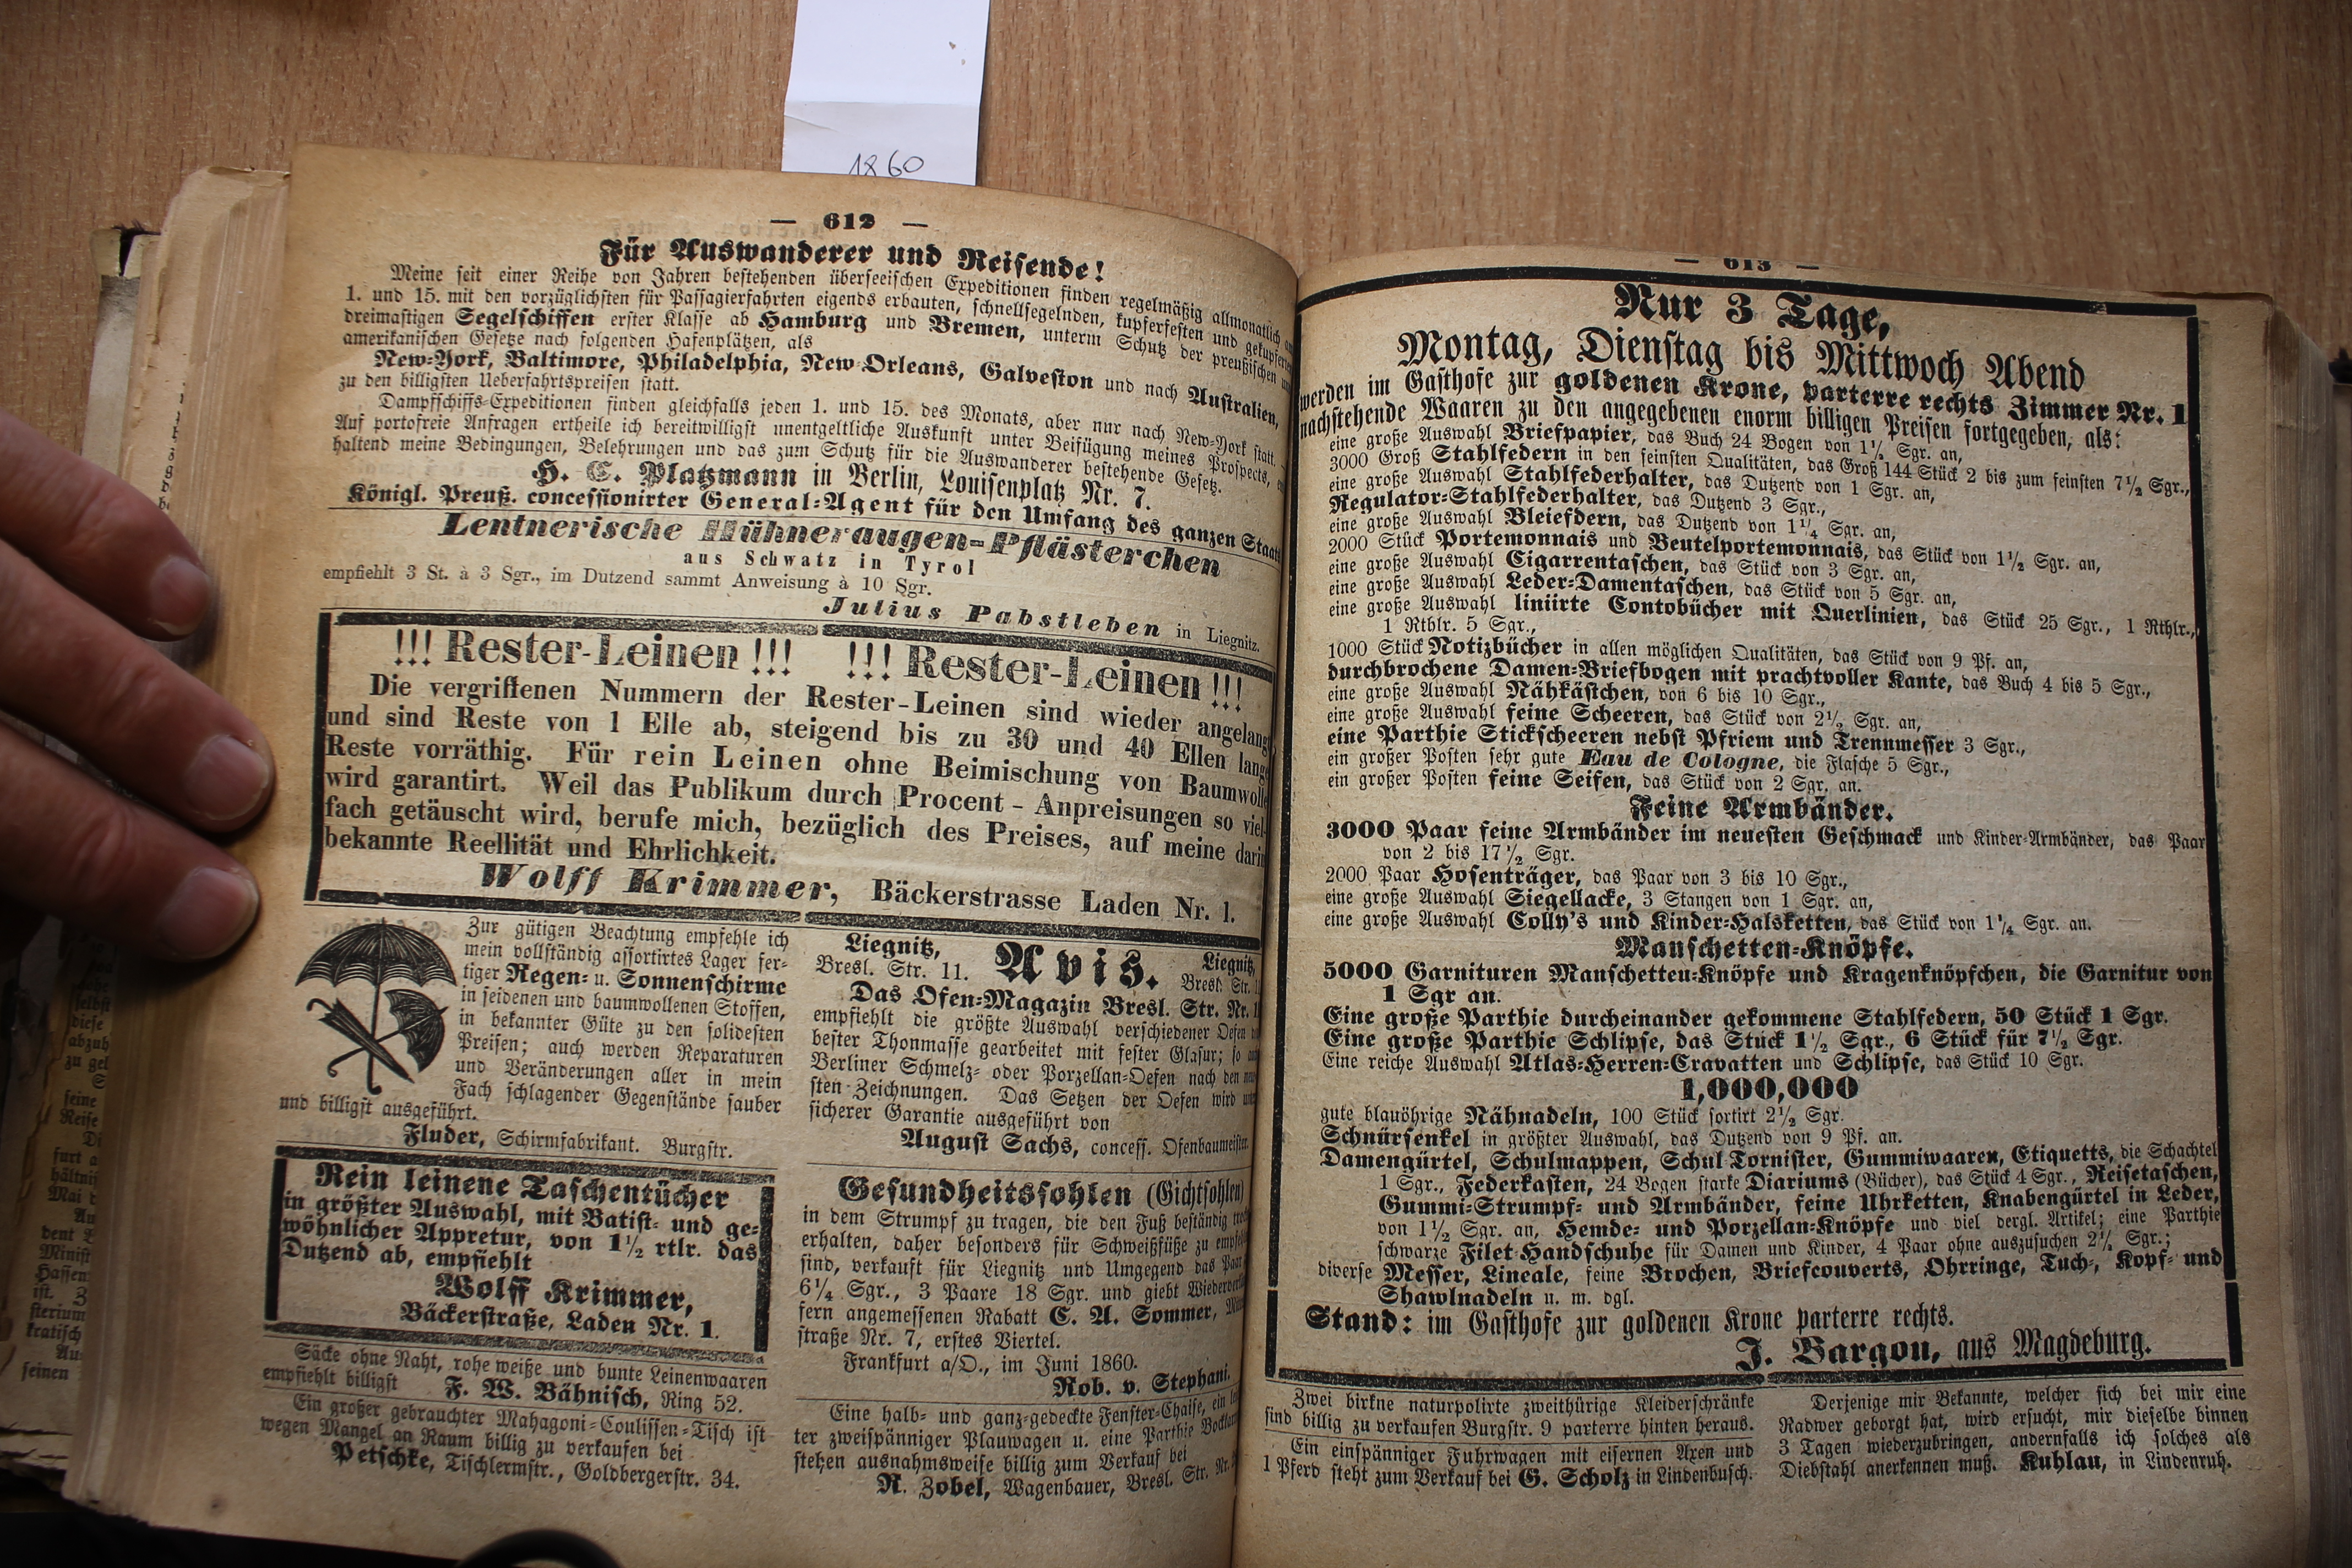 1860
— 612 —
Für Auswanderer und Reisende!
Meine seit einer Reihe von Jahren bestehenden überseeischen Expeditionen finden regelmäßig allmonatlich
1. und 15. mit den vorzüglichsten für Passagierfahrten eigends erbauten, schnellsegelnden, kupferfesten und gekupferten
dreimastigen Segelschiffen erster Klasse ab Hamburg und Bremen, unterm Schutz der preußischen
amerikanischen Gesetze nach folgenden Hafenplätzen, als
New-York, Baltimore, Philadelphia, New-Orleans, Galveston und nach Australien,
zu den billigsten Ueberfahrtspreisen statt.
Dampfschiffs-Expeditionen finden gleichfalls jeden 1. und 15. des Monats, aber nur nach New-York statt.
Auf portofreie Anfragen ertheile ich bereitwilligst unentgeltliche Auskunft unter Beifügung meines Prospects,
haltend meine Bedingungen, Belehrungen und das zum Schutz für die Auswanderer bestehende Gesetz.
H. C. Platzmann in Berlin, Louisenplatz Nr. 7.
Königl. Preuß. concessionirter General-Agent für den Umfang des ganzen Staats
Lentnerische Hühneraugen-Pflästerchen
aus Schwatz in Tyrol
empfiehlt 3 St. à 3 Sgr., im Dutzend sammt Anweisung à 10 Sgr.
Julius Pabstleben in Liegnitz.
!!! Rester-Leinen !!! !!! Rester-Leinen !!!
Die vergriffenen Nummern der Rester-Leinen sind wieder angelangt
und sind Reste von 1 Elle ab, steigend bis zu 30 und 40 Ellen lange
Reste vorräthig. Für rein Leinen ohne Beimischung von Baumwolle
wird garantirt. Weil das Publikum durch Procent-Anpreisungen so viel-
fach getäuscht wird, berufe mich, bezüglich des Preises, auf meine darin
bekannte Reellität und Ehrlichkeit.
Wolff Krimmer, Bäckerstrasse Laden Nr. 1.
Zur gütigen Beachtung empfehle ich
mein vollständig assortirtes Lager fer-
tiger Regen- u. Sonnenschirme
in seidenen und baumwollenen Stoffen,
in bekannter Güte zu den solidesten
Preisen; auch werden Reparaturen
und Veränderungen aller in mein
Fach schlagender Gegenstände sauber
und billigst ausgeführt.
Fluder, Schirmfabrikant. Burgstr.
Rein leinene Taschentücher
in größter Auswahl, mit Batist- und ge-
wöhnlicher Appretur, von 1½ rtlr. das
Dutzend ab, empfiehlt
Wolff Krimmer,
Bäckerstraße, Laden Nr. 1.
Säcke ohne Naht, rohe weiße und bunte Leinenwaaren
empfiehlt billigst F. W. Bähnisch, Ring 52.
Ein großer gebrauchter Mahagoni-Coulissen-Tisch ist
wegen Mangel an Raum billig zu verkaufen bei
Petschke, Tischlermstr., Goldbergerstr. 34.
Liegnitz, Avis. Liegnitz,
Bresl. Str. 11. Bresl. Str.
Das Ofen-Magazin Bresl. Str. Nr.
empfiehlt die größte Auswahl verschiedener Oefen
bester Thonmasse gearbeitet mit fester Glasur; so
Berliner Schmelz- oder Porzellan-Oefen nach den
sten Zeichnungen. Das Setzen der Oefen wird
sicherer Garantie ausgeführt von
August Sachs, concess. Ofenbaumeister.
Gesundheitssohlen (Gichtsohlen)
in dem Strumpf zu tragen, die den Fuß beständig
erhalten, daher besonders für Schweißfüße zu
sind, verkauft für Liegnitz und Umgegend das Paar
6¼ Sgr., 3 Paare 18 Sgr. und giebt
fern angemessenen Rabatt C. A. Sommer,
straße Nr. 7, erstes Viertel.
Frankfurt a/O., im Juni 1860.
Rob. v. Stephani.
Eine halb- und ganz-gedeckte Fenster-Chaise, ein
ter zweispänniger Plauwagen u. eine Parthie
stehen ausnahmsweise billig zum Verkauf bei
R. Zobel, Wagenbauer, Bresl. Str. Nr.
— 613 —
Nur 3 Tage,
Montag, Dienstag bis Mittwoch Abend
werden im Gasthofe zur goldenen Krone, parterre rechts Zimmer Nr. 1
nachstehende Waaren zu den angegebenen enorm billigen Preisen fortgegeben, als:
eine große Auswahl Briefpapier, das Buch 24 Bogen von 1½ Sgr. an,
3000 Groß Stahlfedern in den feinsten Qualitäten, das Groß 144 Stück 2 bis zum feinsten 7½ Sgr.,
eine große Auswahl Stahlfederhalter, das Dutzend von 1 Sgr. an,
Regulator-Stahlfederhalter, das Dutzend 3 Sgr.,
eine große Auswahl Bleiefdern, das Dutzend von 1¼ Sgr. an,
2000 Stück Portemonnais und Beutelportemonnais, das Stück von 1½ Sgr. an,
eine große Auswahl Cigarrentaschen, das Stück von 3 Sgr. an,
eine große Auswahl Leder-Damentaschen, das Stück von 5 Sgr. an,
eine große Auswahl liniirte Contobücher mit Querlinien, das Stück 25 Sgr., 1 Rthlr.,
1 Rthlr. 5 Sgr.,
1000 Stück Notizbücher in allen möglichen Qualitäten, das Stück von 9 Pf. an,
durchbrochene Damen-Briefbogen mit prachtvoller Kante, das Buch 4 bis 5 Sgr.,
eine große Auswahl Nähkästchen, von 6 bis 10 Sgr.,
eine große Auswahl feine Scheeren, das Stück von 2½ Sgr. an,
eine Parthie Stickscheeren nebst Pfriem und Trennmesser 3 Sgr.,
ein großer Posten sehr gute Eau de Cologne, die Flasche 5 Sgr.,
ein großer Posten feine Seifen, das Stück von 2 Sgr. an.
Feine Armbänder.
3000 Paar feine Armbänder im neuesten Geschmack und Kinder-Armbänder, das Paar
von 2 bis 17½ Sgr.
2000 Paar Hosenträger, das Paar von 3 bis 10 Sgr.,
eine große Auswahl Siegellacke, 3 Stangen von 1 Sgr. an,
eine große Auswahl Colly's und Kinder-Halsketten, das Stück von 1¼ Sgr. an.
Manschetten-Knöpfe.
5000 Garnituren Manschetten-Knöpfe und Kragenknöpfchen, die Garnitur von
1 Sgr an.
Eine große Parthie durcheinander gekommene Stahlfedern, 50 Stück 1 Sgr.
Eine große Parthie Schlipse, das Stück 1½ Sgr., 6 Stück für 7½ Sgr.
Eine reiche Auswahl Atlas-Herren-Cravatten und Schlipse, das Stück 10 Sgr.
1,000,000
gute blauöhrige Nähnadeln, 100 Stück sortirt 2½ Sgr.
Schnürsenkel in größter Auswahl, das Dutzend von 9 Pf. an.
Damengürtel, Schulmappen, Schul-Tornister, Gummiwaaren, Etiquetts, die Schachtel
1 Sgr., Federkasten, 24 Bogen starke Diariums (Bücher), das Stück 4 Sgr., Reisetaschen,
Gummi-Strumpf- und Armbänder, feine Uhrketten, Knabengürtel in Leder,
von 1½ Sgr. an, Hemde- und Porzellan-Knöpfe und viel dergl. Artikel; eine Parthie
schwarze Filet-Handschuhe für Damen und Kinder, 4 Paar ohne auszusuchen 2½ Sgr.;
diverse Messer, Lineale, feine Brochen, Briefcouverts, Ohrringe, Tuch-, Kopf- und
Shawlnadeln u. m. dgl.
Stand: im Gasthofe zur goldenen Krone parterre rechts.
J. Bargou, aus Magdeburg.
Zwei birkne naturpolirte zweithürige Kleiderschränke
sind billig zu verkaufen Burgstr. 9 parterre hinten heraus.
Ein einspänniger Fuhrwagen mit eisernen Axen und
1 Pferd steht zum Verkauf bei G. Scholz in Lindenbusch.
Derjenige mir Bekannte, welcher sich bei mir eine
Radwer geborgt hat, wird ersucht, mir dieselbe binnen
3 Tagen wiederzubringen, andernfalls ich solches als
Diebstahl anerkennen muß. Kuhlau, in Lindenruh.